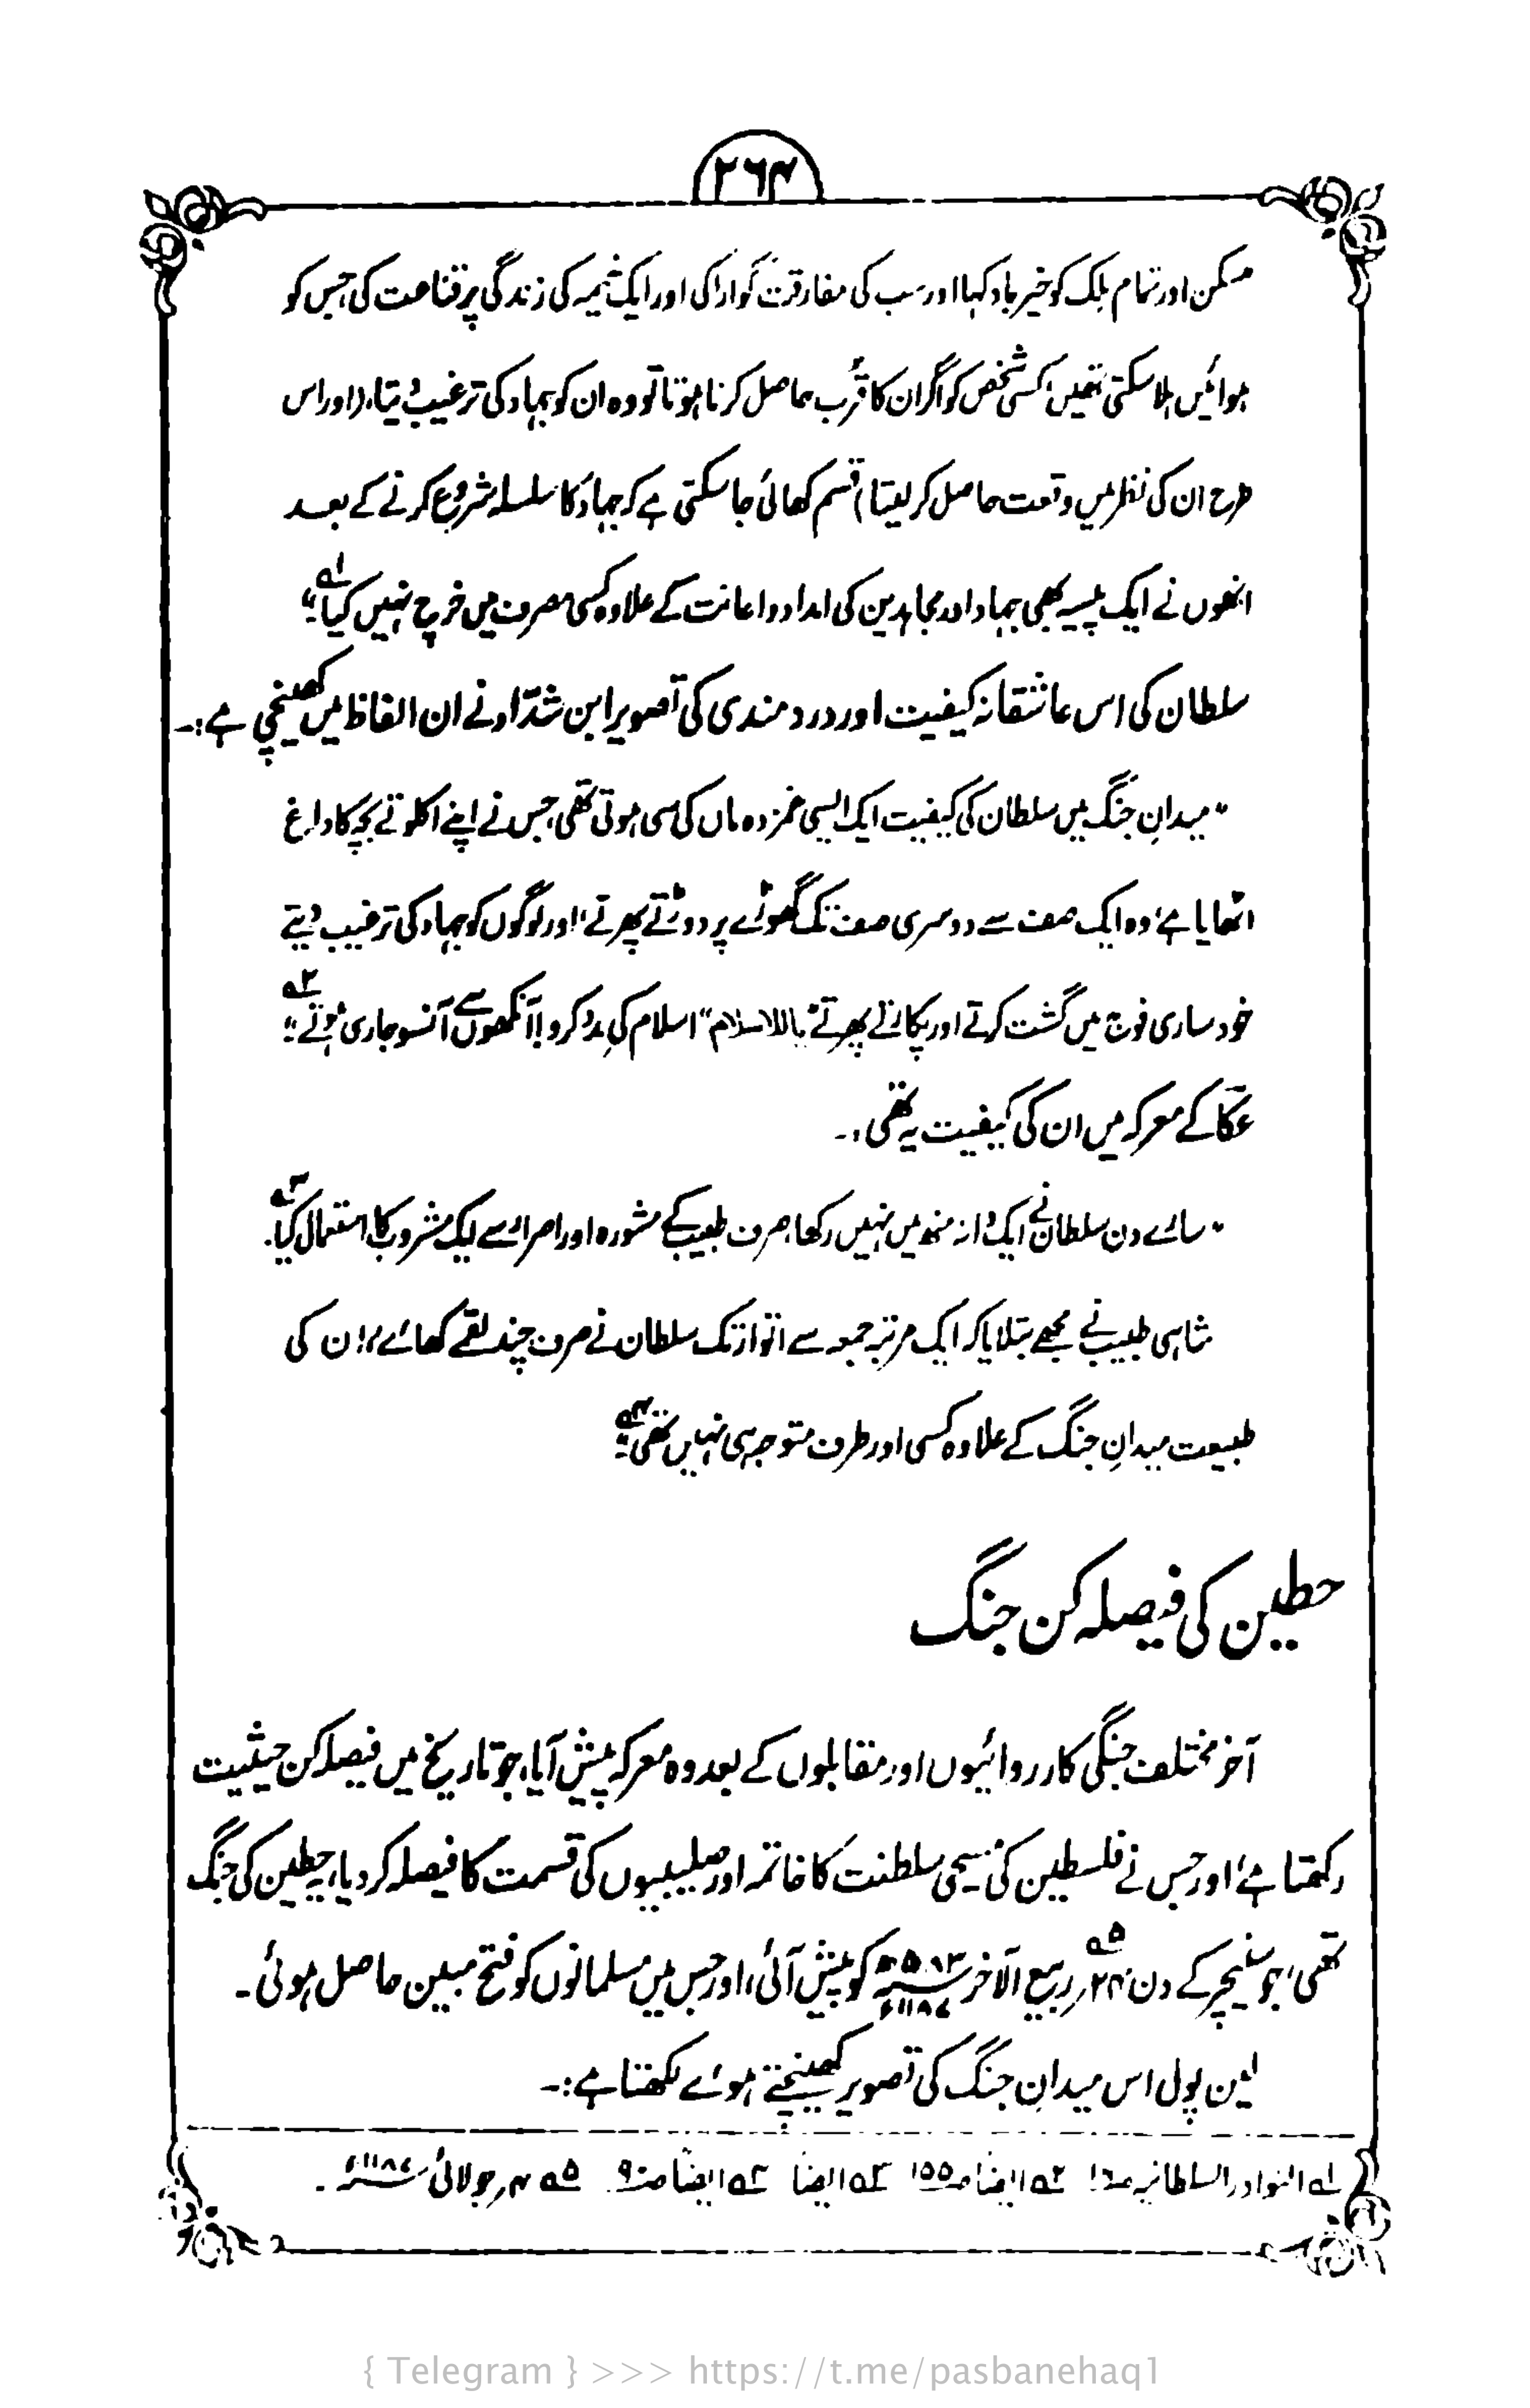 ۲۶۴
مسکن اور تمام ملک کو خیرباد کہا اور سب کی مفارقت گوارا کی اور ایک خیمہ کی زندگی پر قناعت کی جس کو
ہوائیں ہلا سکتی تھیں، کسی شخص کو اگر ان کا قُرب حاصل کرنا ہوتا تو وہ ان کو جہاد کی ترغیب دیتا، (اور اس
طرح ان کی نظر میں وقعت حاصل کر لیتا) قسم کھائی جا سکتی ہے کہ جہاد کا سلسلہ شروع کرنے کے بعد
انھوں نے ایک پیسہ بھی جہاد اور مجاہدین کی امداد و اعانت کے علاوہ کسی مصرف میں خرچ نہیں کیا"۱؎
سلطان کی اس عاشقانہ کیفیت اور دردمندی کی تصویر ابن شدّاد نے ان الفاظ میں کھینچی ہے:۔
"میدانِ جنگ میں سلطان کی کیفیت ایک ایسی غمزدہ ماں کی سی ہوتی تھی، جس نے اپنے اکلوتے بچہ کا داغ
اٹھایا ہے، وہ ایک صف سے دوسری صف تک گھوڑے پر دوڑتے پھرتے، اور لوگوں کو جہاد کی ترغیب دیتے
خود ساری فوج میں گشت کرتے اور پکارتے پھرتے "یاللاسلام" اسلام کی مدد کرو! آنکھوں سے آنسو جاری ہوتے"۲؎
عکّا کے معرکہ میں ان کی کیفیت یہ تھی:۔
"سارے دن سلطان نے ایک دانہ منھ میں نہیں رکھا، صرف طبیب کے مشورہ اور اصرار سے ایک مشروب کا استعمال کیا۳؎۔
شاہی طبیب نے مجھے بتلایا کہ ایک مرتبہ جمعہ سے اتوار تک سلطان نے صرف چند لقمے کھائے، ان کی
طبیعت میدانِ جنگ کے علاوہ کسی اور طرف متوجہ ہی نہیں تھی"۴؎
حطین کی فیصلہ کن جنگ
آخر مختلف جنگی کارروائیوں اور مقابلوں کے بعد وہ معرکہ پیش آیا، جو تاریخ میں فیصلہ کن حیثیت
رکھتا ہے، اور جس نے فلسطین کی مسیحی سلطنت کا خاتمہ اور صلیبیوں کی قسمت کا فیصلہ کر دیا، یہ حطین کی جنگ
تھی، جو سنیچر کے دن ۲۴؍ ربیع الآخر۵؎ ۵۸۳ھ ۱۱۸۷ء کو پیش آئی، اور جس میں مسلمانوں کو فتح مبین حاصل ہوئی۔
لین پول اس میدانِ جنگ کی تصویر کھینچتے ہوئے لکھتا ہے:۔
۱؎ النوادر السلطانیہ ص۱۶ ۲؎ ایضاً ص۱۵۵ ۳؎ ایضاً ۴؎ ایضاً ص۹۰ ۵؎ ۴؍ جولائی ۱۱۸۷ء۔
{ Telegram } >>> https://t.me/pasbanehaq1